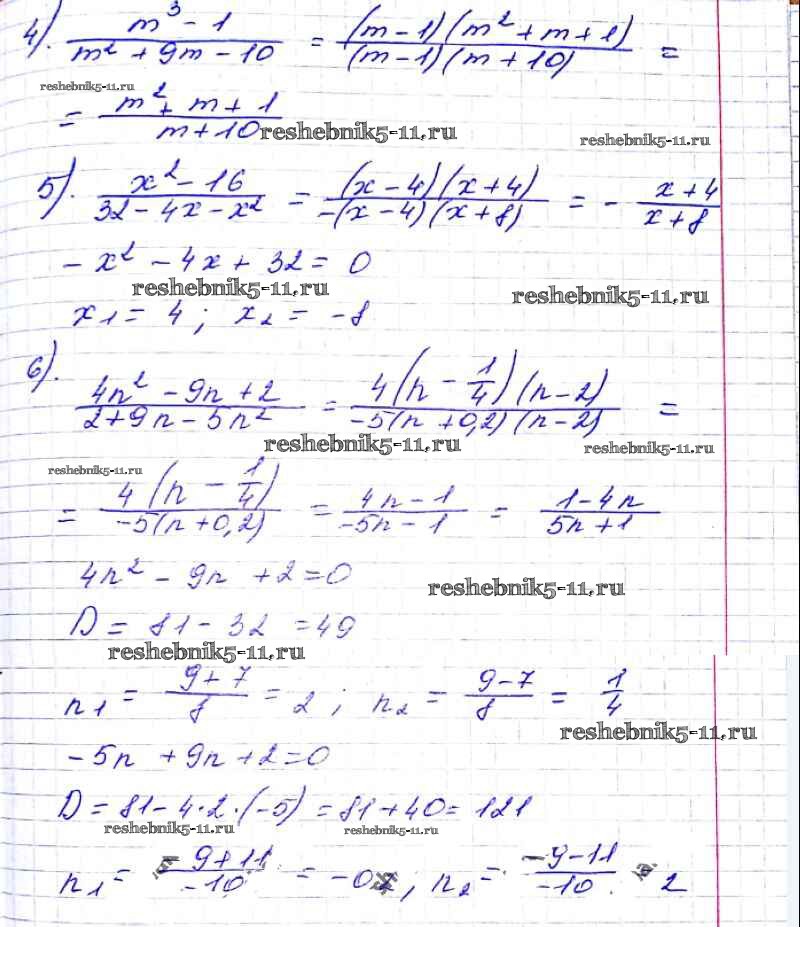 4). (m³ - 1)/(m² + 9m - 10) = ((m - 1)(m² + m + 1))/((m - 1)(m + 10)) =
reshebnik5-11.ru
= (m² + m + 1)/(m + 10)
reshebnik5-11.ru
reshebnik5-11.ru
5). (x² - 16)/(32 - 4x - x²) = ((x - 4)(x + 4))/(-(x - 4)(x + 8)) = - (x + 4)/(x + 8)
- x² - 4x + 32 = 0
reshebnik5-11.ru
reshebnik5-11.ru
x₁ = 4; x₂ = -8
6).
(4n² - 9n + 2)/(2 + 9n - 5n²) = (4(n - 1/4)(n - 2))/(-5(n + 0,2)(n - 2)) =
reshebnik5-11.ru
reshebnik5-11.ru
reshebnik5-11.ru
= (4(n - 1/4))/(-5(n + 0,2)) = (4n - 1)/(-5n - 1) = (1 - 4n)/(5n + 1)
4n² - 9n + 2 = 0
reshebnik5-11.ru
D = 81 - 32 = 49
reshebnik5-11.ru
n₁ = (9 + 7)/8 = 2; n₂ = (9 - 7)/8 = 1/4
reshebnik5-11.ru
- 5n + 9n + 2 = 0
D = 81 - 4·2·(-5) = 81 + 40 = 121
reshebnik5-11.ru
reshebnik5-11.ru
n₁ = (-9 + 11)/-10 = -0,2; n₂ = (-9 - 11)/-10 = 2